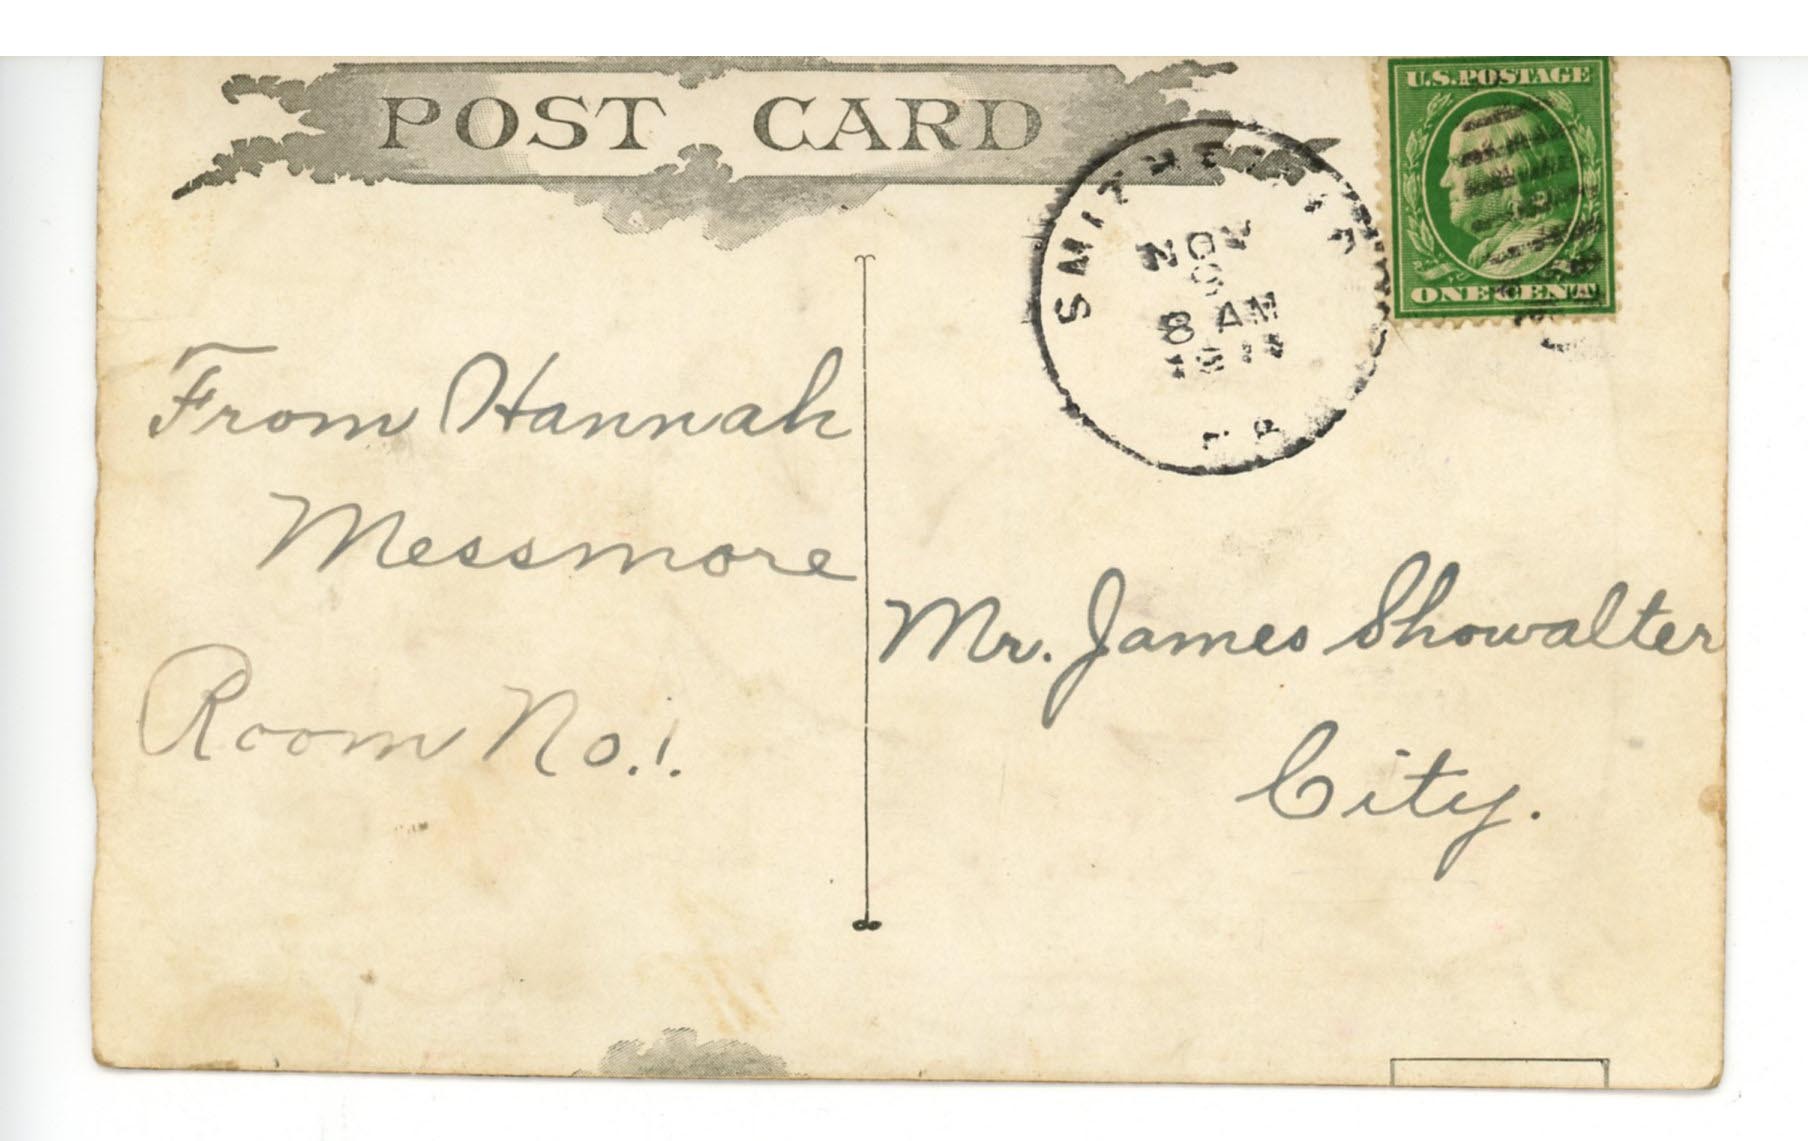 POST CARD
U.S. POSTAGE
ONE CENT
NOV
8 AM
From Hannah
Messmore
Room No. 1.
Mr. James Showalter
City.